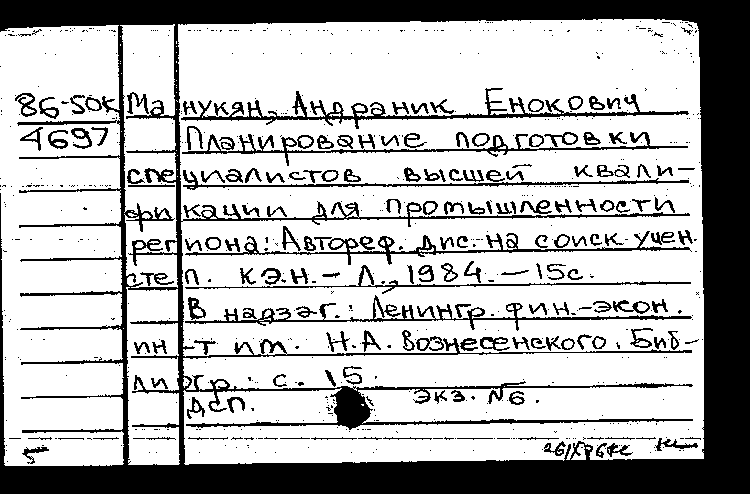 86-50к Манукян, Андраник Енокович
4697 Планирование подготовки
специалистов высшей квали-
фикации для промышленности
региона: Автореф. дис. на соиск. учен.
степ. к.э.н. - Л., 1984. - 15с.
В надзаг.: Ленингр. фин.-экон.
ин-т им. Н.А. Вознесенского. Биб-
лиогр.: с. 15.
ДСП. экз. №6.
5